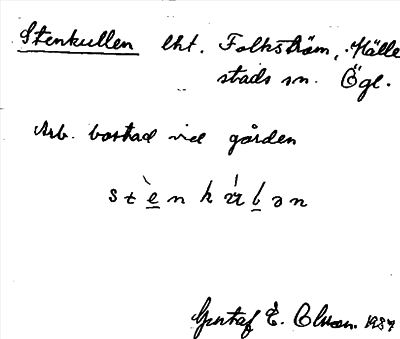 Stenkullen lht. Folkström, Hälle-
stads sn. Ögl.
Arb. bostad vid gården
Gustaf E. Olsson. 1937